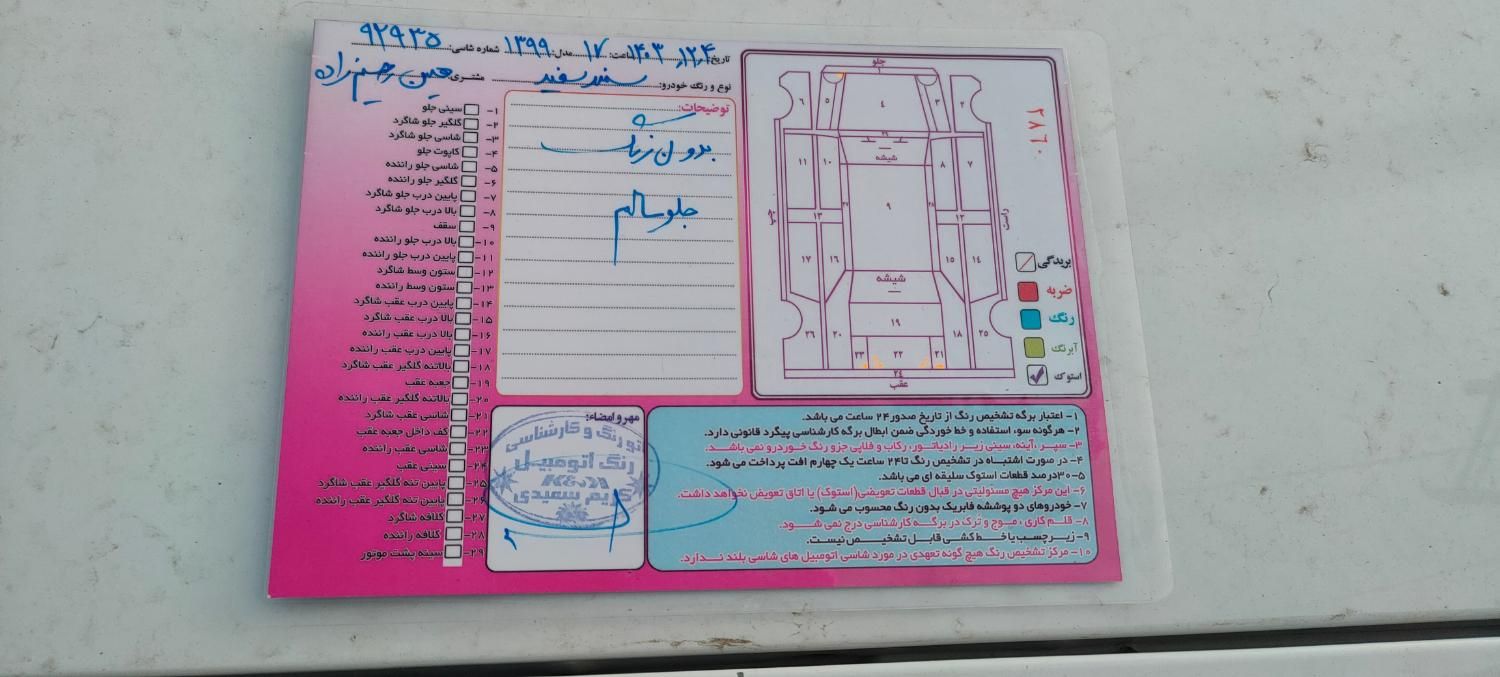 تاریخ: ۱۴۰۳,۱۲,۴ ساعت: ۱۷ مدل: ۱۳۹۹ شماره شاسی: ۹۲۹۳۵
نوع و رنگ خودرو: سمند سفید مشتری:
توضیحات:
بدون رنگ
جلو سالم
۱- سینی جلو
۲- گلگیر جلو شاگرد
۳- شاسی جلو شاگرد
۴- کاپوت جلو
۵- شاسی جلو راننده
۶- گلگیر جلو راننده
۷- پایین درب جلو شاگرد
۸- بالا درب جلو شاگرد
۹- سقف
۱۰- بالا درب جلو راننده
۱۱- پایین درب جلو راننده
۱۲- ستون وسط شاگرد
۱۳- ستون وسط راننده
۱۴- پایین درب عقب شاگرد
۱۵- بالا درب عقب شاگرد
۱۶- بالا درب عقب راننده
۱۷- پایین درب عقب راننده
۱۸- بالاتنه گلگیر عقب شاگرد
۱۹- جعبه عقب
۲۰- بالاتنه گلگیر عقب راننده
۲۱- شاسی عقب شاگرد
۲۲- کف داخل جعبه عقب
۲۳- شاسی عقب راننده
۲۴- سینی عقب
۲۵- پایین تنه گلگیر عقب شاگرد
۲۶- پایین تنه گلگیر عقب راننده
۲۷- کلافه شاگرد
۲۸- کلافه راننده
۲۹- سینه پشت موتور
جلو
۱
۶ ۵ ۴ ۳ ۲
۲۹
شیشه
۱۱ ۱۰ ۸ ۷
۲۷ ۹ ۲۸
چپ ۱۳ ۱۲ راست
۱۷ ۱۶ ۱۵ ۱۴
شیشه
۲۶ ۲۰ ۱۹ ۱۸ ۲۵
۲۳ ۲۲ ۲۱
۲۴
عقب
بریدگی
ضربه
رنگ
آبرنگ
استوک
مهر و امضاء:
رنگ و کارشناسی
رنگ اتومبیل
کریم سعیدی
۱- اعتبار برگه تشخیص رنگ از تاریخ صدور ۲۴ ساعت می باشد.
۲- هرگونه سوء استفاده و خط خوردگی ضمن ابطال برگه کارشناسی پیگرد قانونی دارد.
۳- سپر، آینه، سینی زیر رادیاتور، رکاب و قلاپی جزو رنگ خودرو نمی باشد.
۴- در صورت اشتباه در تشخیص رنگ تا ۲۴ ساعت یک چهارم افت پرداخت می شود.
۵- ۳۰درصد قطعات استوک سلیقه ای می باشد.
۶- این مرکز هیچ مسئولیتی در قبال قطعات تعویضی(استوک) یا اتاق تعویض نخواهد داشت.
۷- خودروهای دو پوششه فابریک بدون رنگ محسوب می شود.
۸- قلم کاری، موج و ترک در برگه کارشناسی درج نمی شود.
۹- زیر چسب یا خط کشی قابل تشخیص نیست.
۱۰- مرکز تشخیص رنگ هیچ گونه تعهدی در مورد شاسی اتومبیل های شاسی بلند ندارد.